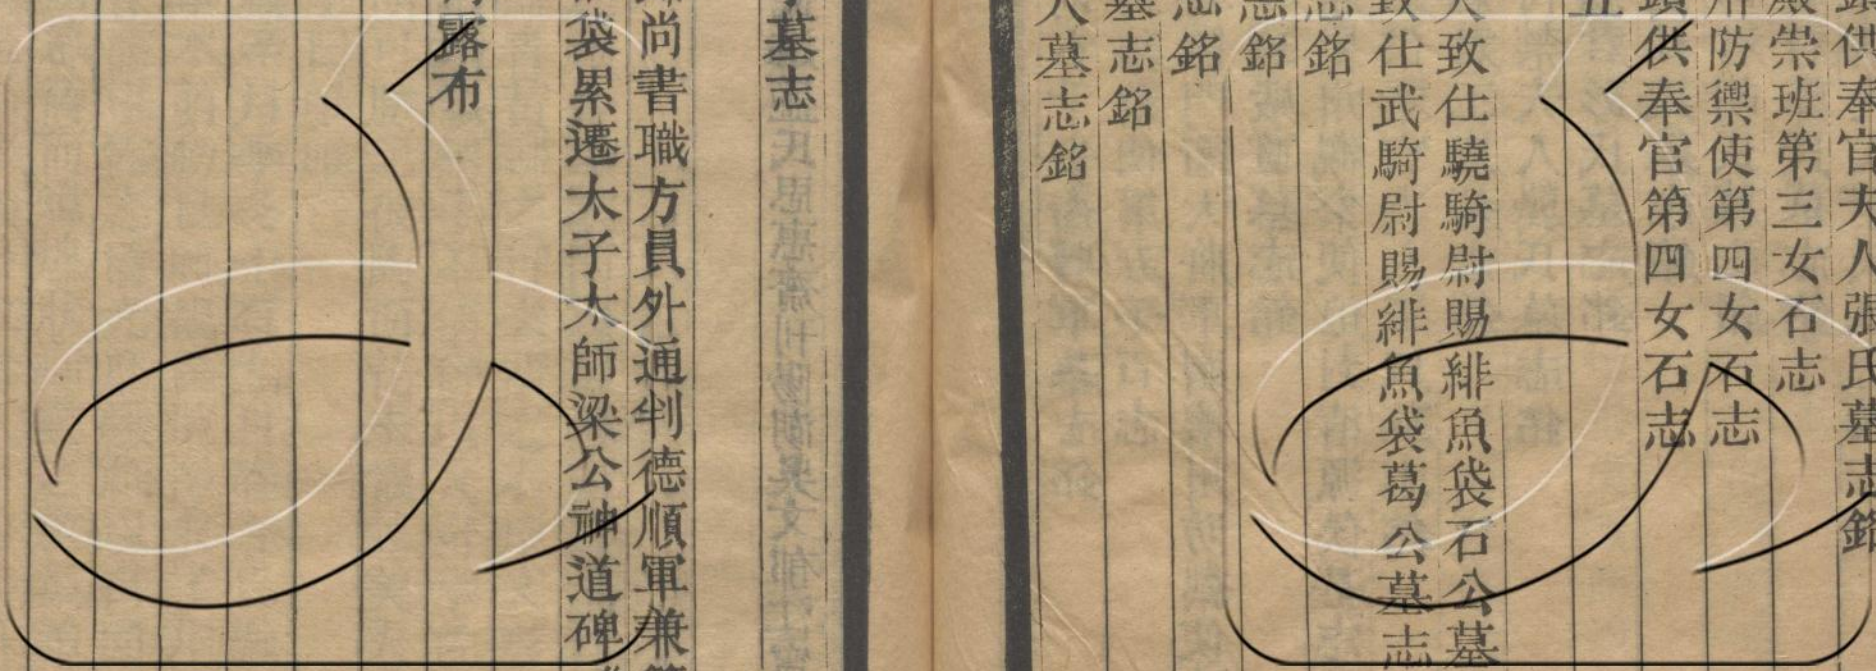 頭供奉官夫人張氏墓志銘
殿崇班第三女石志
州防禦使第四女石志
頭供奉官第四女石志
五
致仕驍騎尉賜緋魚袋石公墓
致仕武騎尉賜緋魚袋葛公墓志
志銘
志銘
志銘
墓志銘
人墓志銘
墓志
尚書職方員外通判德順軍兼
袋累遷太子太師梁公神道碑
露布